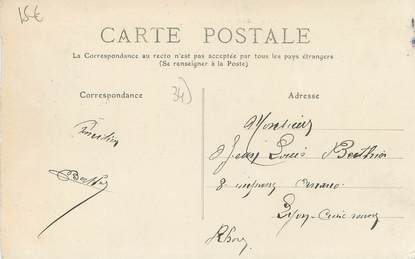 15€
CARTE POSTALE
La Correspondance au recto n'est pas acceptée par tous les pays étrangers
(Se renseigner à la Poste)
Correspondance
34)
Adresse
Monsieur
Jean Louis Berthier
8
Lyon-Croix rousse
Rhône